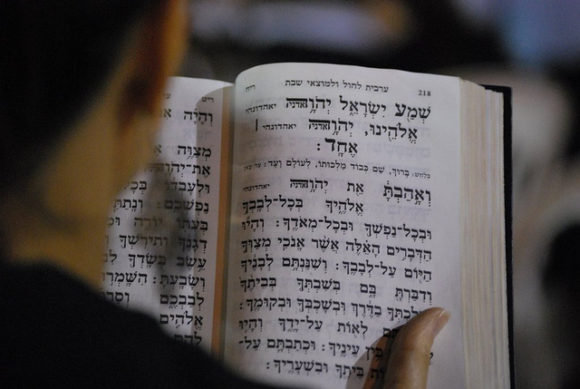 218 ערבית לחול ולמוצאי שבת ריח
שְׁמַע יִשְׂרָאֵל יְהֹוָה יאהדונהי
אֱלֹהֵינוּ, יְהֹוָה יאהדונהי |
אֶחָד:
בלחש: בָּרוּךְ, שֵׁם כְּבוֹד מַלְכוּתוֹ, לְעוֹלָם וָעֶד:
וְאָהַבְתָּ אֵת יְהֹוָה יאהדונהי
אֱלֹהֶיךָ בְּכָל־לְבָבְךָ
וּבְכָל־נַפְשְׁךָ וּבְכָל־מְאֹדֶךָ: וְהָיוּ
הַדְּבָרִים הָאֵלֶּה אֲשֶׁר אָנֹכִי מְצַוְּךָ
הַיּוֹם עַל־לְבָבֶךָ: וְשִׁנַּנְתָּם לְבָנֶיךָ
וְדִבַּרְתָּ בָּם בְּשִׁבְתְּךָ בְּבֵיתֶךָ
וּבְלֶכְתְּךָ בַדֶּרֶךְ וּבְשָׁכְבְּךָ וּבְקוּמֶךָ:
לְאוֹת עַל־יָדֶךָ וְהָיוּ
בֵּין עֵינֶיךָ: וּכְתַבְתָּם עַל־
בֵּיתֶךָ וּבִשְׁעָרֶיךָ:
ריט
וְהָיָה
מִצְוֺ
אֶת־יְהֹוָה
וּלְעָבְדוֹ
נַפְשְׁכֶם: וְנָתַתִּי
בְּעִתּוֹ יוֹרֶה
דְגָנֶךָ וְתִירֹשְׁךָ
עֵשֶׂב בְּשָׂדְךָ
וְשָׂבָעְתָּ: הִשָּׁמְרוּ
לְבַבְכֶם
אֱלֹהִים